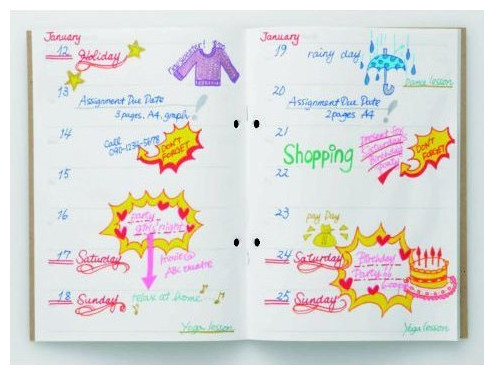 January
12 Holiday
13
Assignment Due Date
3 pages. A4, graph
14
Call
090-1235-5678
DON'T
FORGET
15
16
party
girls' night
17 Saturday
movie@
ABC theatre
18 Sunday
relax at home
Yoga lesson
January
19 rainy day
Dance lesson
20
Assignment Due Date
2 pages A4
21
Shopping
Present for
Saturday's
Birthday
Party
DON'T
FORGET
22
23
pay Day
24 Saturday
Birthday
Party @
25 Sunday
Yoga lesson